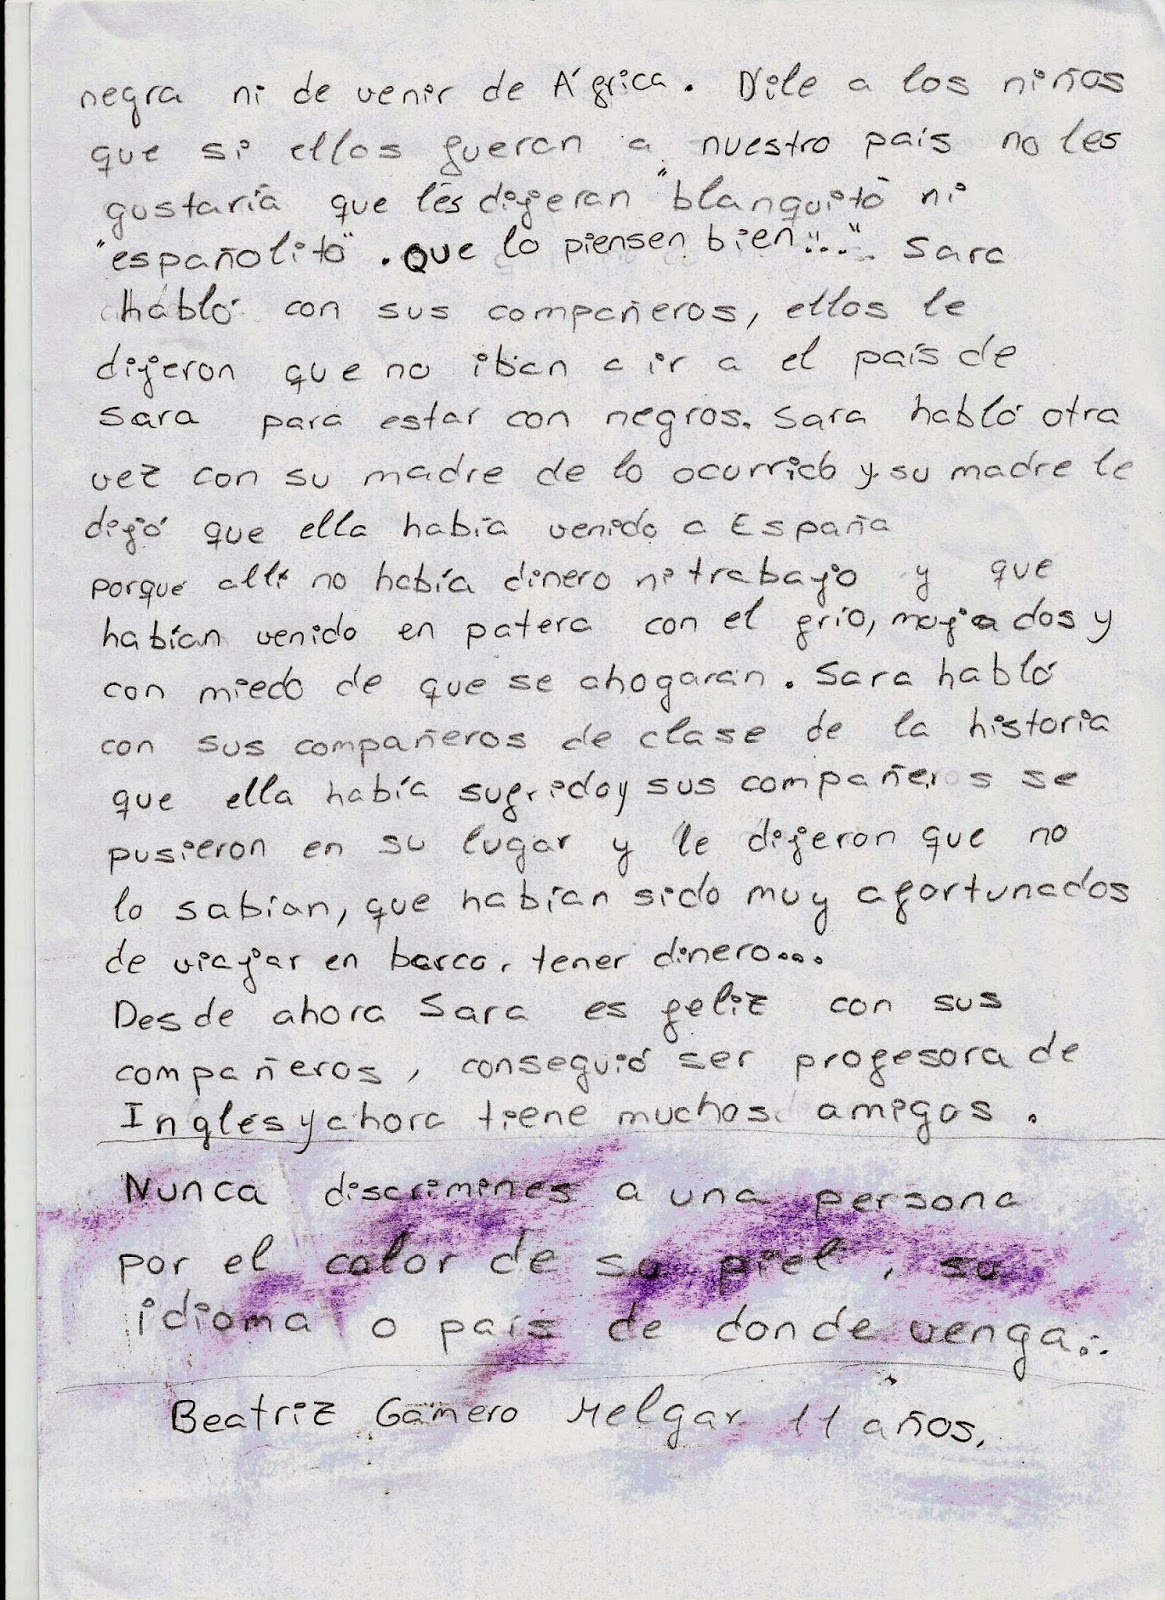 negra ni de venir de África. Dile a los niños
que si ellos fueran a nuestro país no les
gustaría que les dijeran "blanquito" ni
"españolito". Que lo piensen bien..." Sara
habló con sus compañeros, ellos le
dijeron que no iban a ir a el país de
Sara para estar con negros. Sara habló otra
vez con su madre de lo ocurrido y su madre le
dijó que ella había venido a España
porque allí no había dinero ni trabajo y que
habían venido en patera con el frío, mojados y
con miedo de que se ahogaran. Sara habló
con sus compañeros de clase de la historia
que ella había sufrido y sus compañeros se
pusieron en su lugar y le dijeron que no
lo sabían, que habían sido muy afortunados
de viajar en barco, tener dinero...
Desde ahora Sara es feliz con sus
compañeros, conseguió ser profesora de
Inglés y ahora tiene muchos amigos.
Nunca discrimines a una persona
por el color de su piel, su
idioma o país de donde venga..
Beatriz Gamero Melgar 11 años.